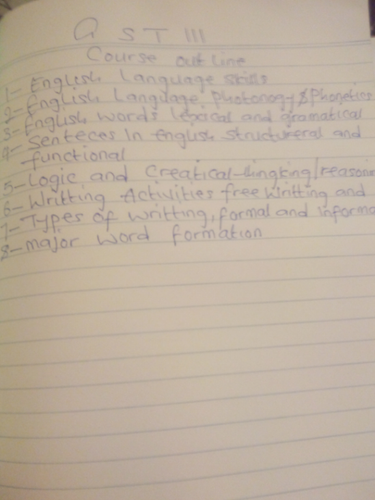 GST III
Course outline
1- English Language skills
2- English Language, Photonogy & Phonetics
3- English words lexical and gramatical
4- Senteces in english structureral and
functional
5- Logic and Creatical-lingking/reasoni
6- Writting Activities free writting and
7- Types of writting, formal and informa
8- major word formation